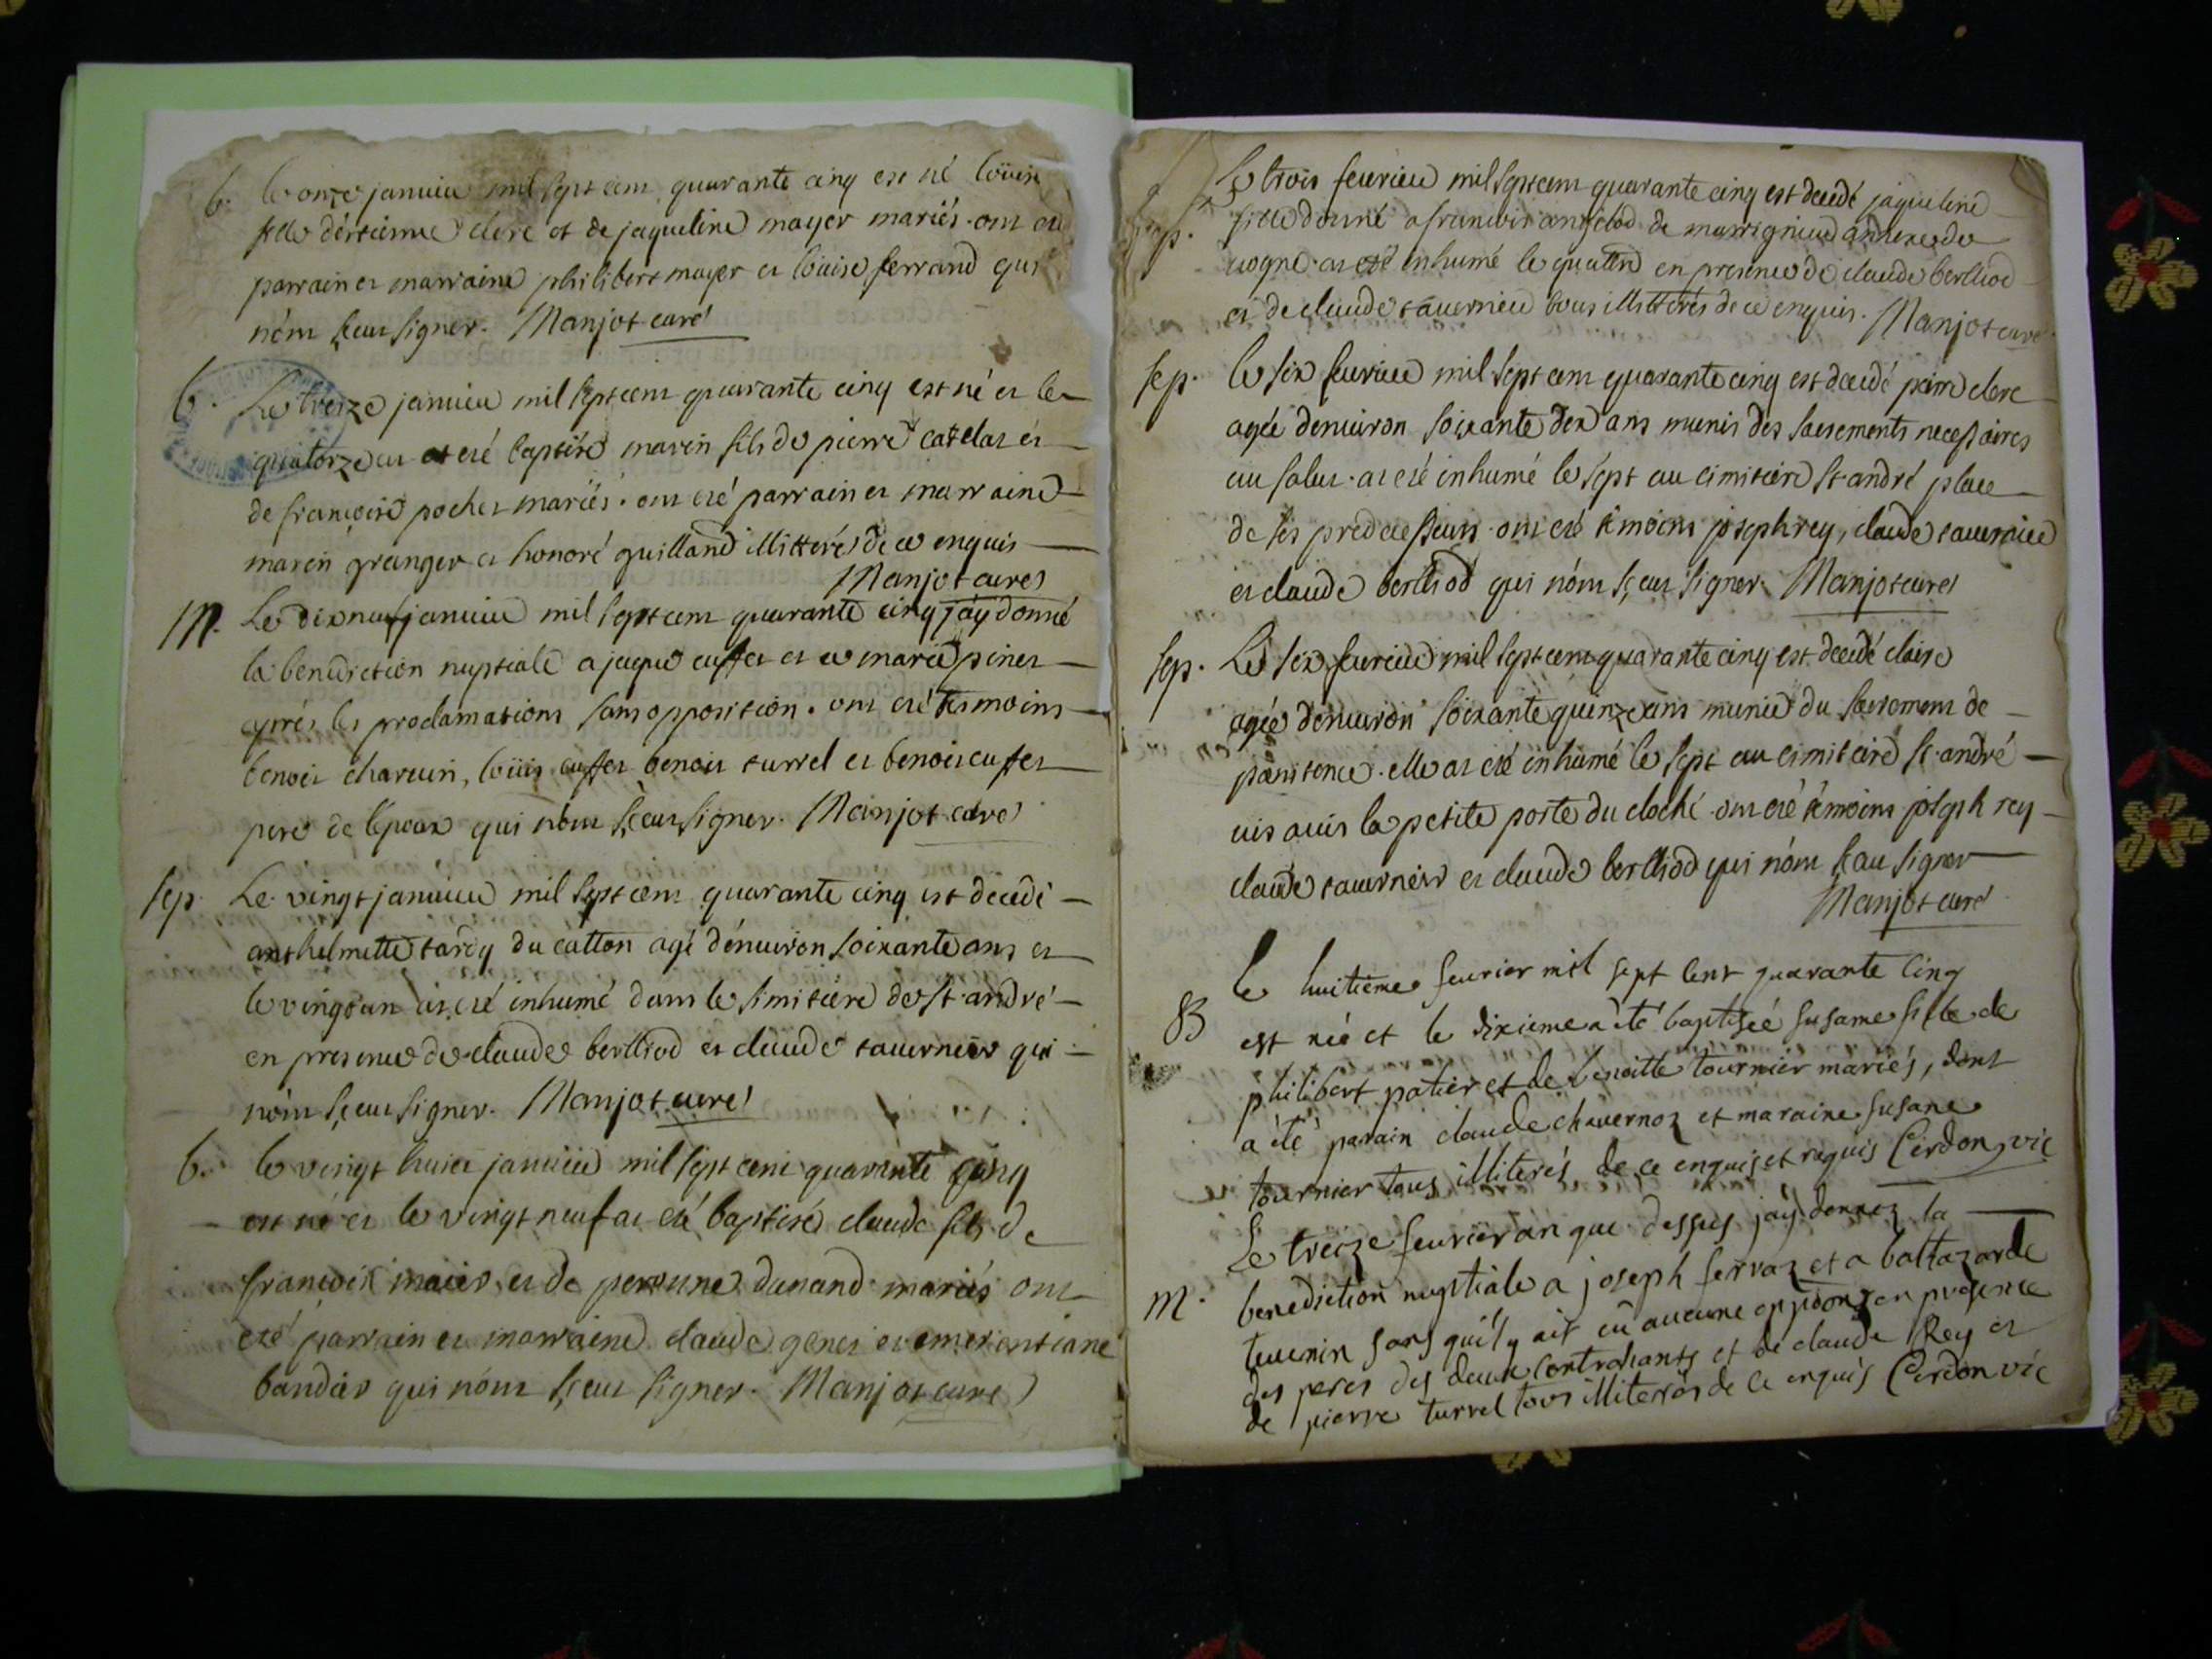 b. le onze januier mil sept cent quarante cinq est né loüise
fille d'estienne clerc et de jaqueline mayer mariés. ont eté
parrain et marraine philibert mayer et loüise ferrand qui
n'ont sçeut signer. Manjot curé
b. Le treize januier mil sept cent quarante cinq est né et le
quatorze at eté baptisé marin fils de pierre catelas et
de françoise pochet mariés. ont eté parrain et marraine
marin granger et honoré guilland illitterés de ce enquis
Manjot curé
M. Le dix neuf januier mil sept cent quarante cinq j'ay donné
la benediction nuptiale a jaque cuffet et a marie pinet
aprés les proclamations sans opposition. ont eté tesmoins
benoit charuin, loüis cuffet benoit turrel et benoit cuffet
pere de l'epoux qui n'ont sçeut signer. Manjot curé
sep. Le vingt januier mil sept cent quarante cinq est decedé
anthelmette tardy du catton agé d'enuiron soixante ans et
le vingt un at eté inhumé dans le simitiere de st. andré
en presence de claude berthod et claude tauernier qui
n'ont sçeut signer. Manjot curé
b. le vingt huict januier mil sept cent quarante cinq
est né et le vingt neuf at eté baptisé claude fils de
françois maier et de peronne dunand mariés ont
eté parrain et marraine claude genet et emerantiane
bandier qui n'ont sçeut signer. Manjot curé
Le trois feurier mil sept cent quarante cinq est decedé jaqueline
sep. fille donné a francois de marrignieu annexe de
at eté inhumé le quatre en presence de claude berthod
et de claude tauernier tous illitterés de ce enquis. Manjot curé
sep. le six feurier mil sept cent quarante cinq est decedé clerc
agée d'enuiron soixante dix ans munis des sacrements necessaires
au salut. at eté inhumé le sept au cimitiere st. andré place
de ses predecesseurs. ont eté témoins joseph rey, claude tauernier
et claude berthod qui n'ont sçeut signer. Manjot curé
sep. Le six feurier mil sept cent quarante cinq est decedé claire
agée d'enuiron soixante quinze ans munie du sacrement de
penitence. elle at eté inhumé le sept au cimitiere st. andré
uis auis la petite porte du cloché. ont eté témoins joseph rey
claude tauernier et claude berthod qui n'ont sçeut signer
Manjot curé
le huitieme feurier mil sept cent quarante cinq
B est née et le dixieme a été baptisée susane fille de
philibert patier et de benoitte tournier mariés, dont
a été parain claude chauernoz et maraine susane
tournier tous illiterés de ce enquis et requis Cerdon vic
Le treize feurier an que dessus j'ay donnez la
M. benediction nuptiale a joseph ferraz et a baltazarde
teuenin sans qu'il y ait eû aucune en presence
des peres des deux contrahants et de claude Rey et
de pierre turrel tous illiterés de ce enquis Cerdon vic